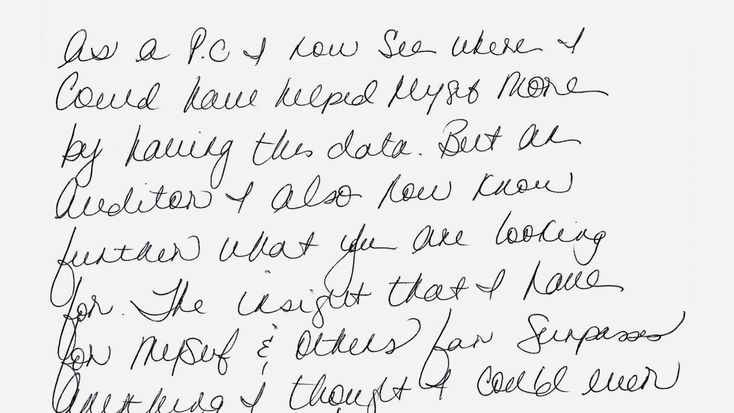 As a P.C I now see where I
Could have helped Myself More
by having this data. But as
Auditor I also now know
further what you are looking
for. The insight that I have
for myself & others far Surpasses
Anything I thought I could ever